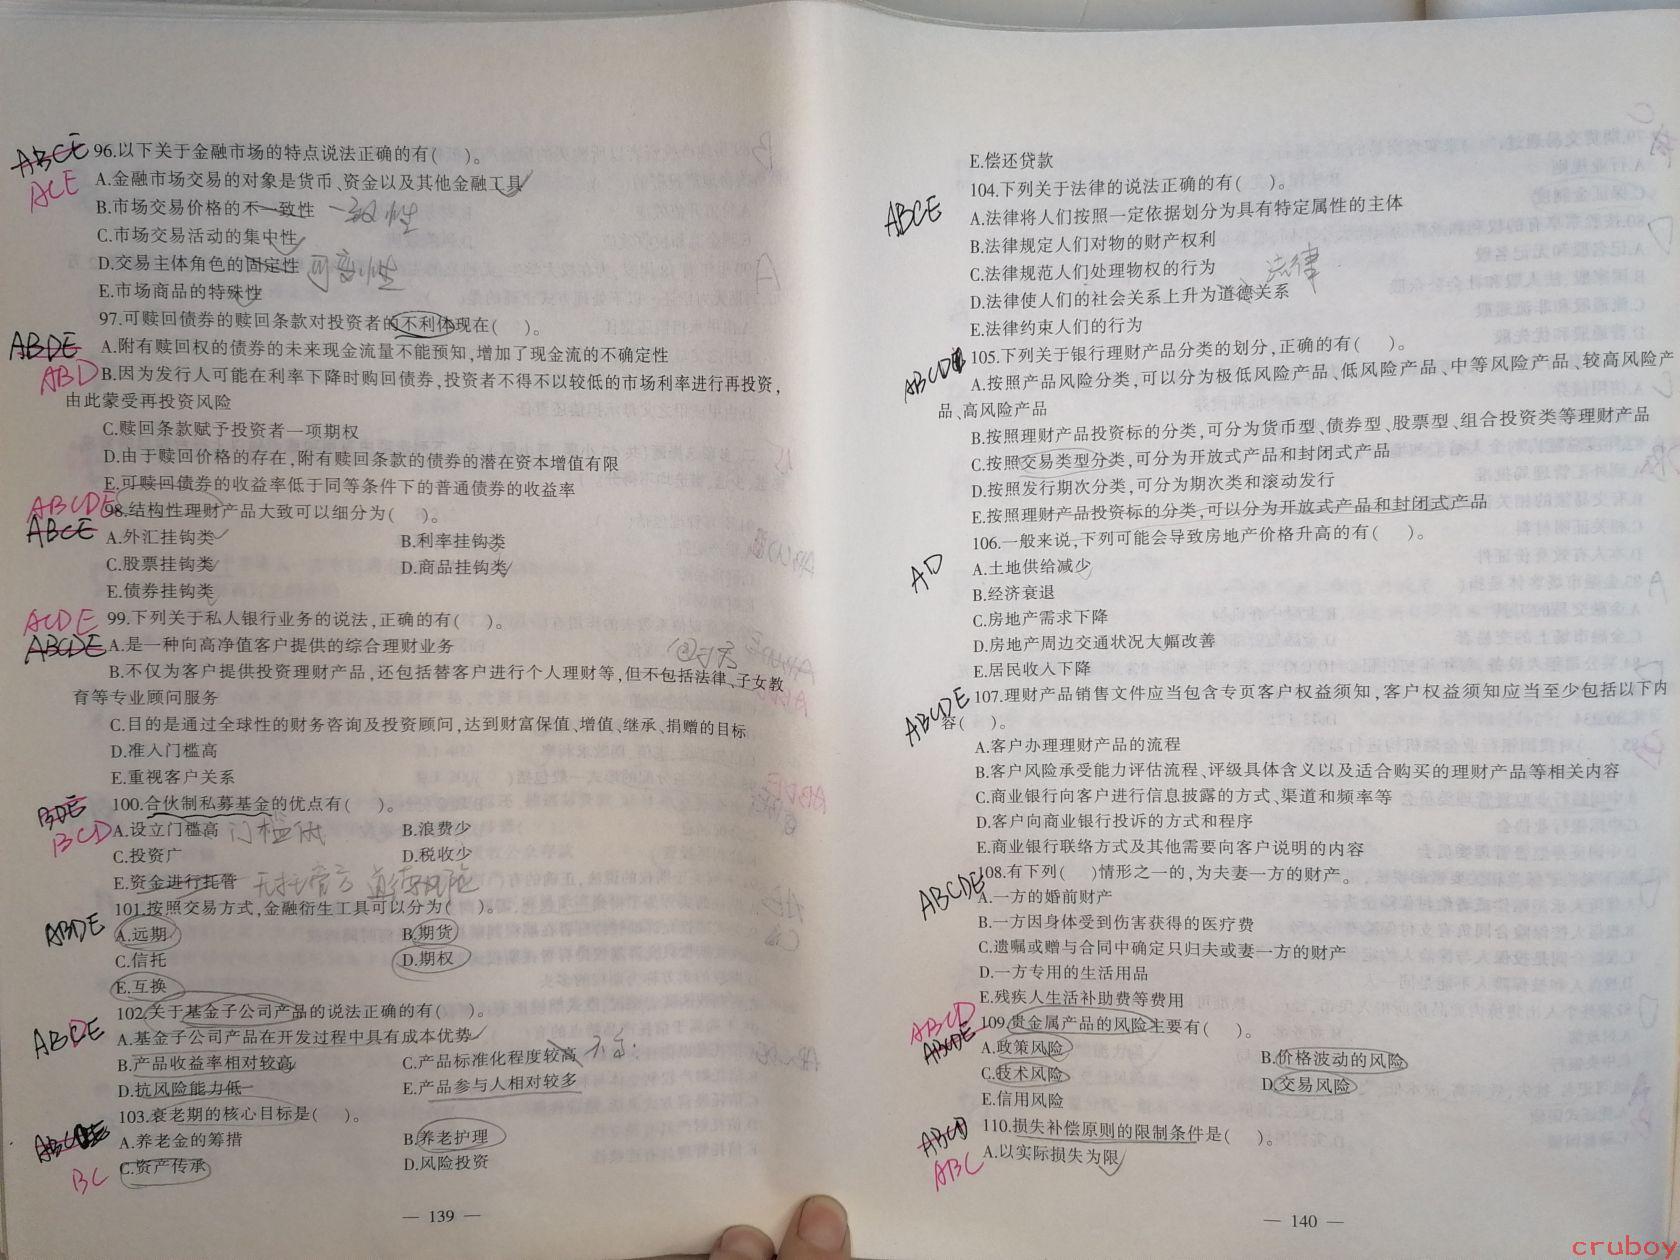 ABCE 96.以下关于金融市场的特点说法正确的有(  )。
ACE A.金融市场交易的对象是货币、资金以及其他金融工具
B.市场交易价格的不一致性 一致性
C.市场交易活动的集中性
D.交易主体角色的固定性 可变性
E.市场商品的特殊性
97.可赎回债券的赎回条款对投资者的不利体现在(  )。
ABDE A.附有赎回权的债券的未来现金流量不能预知,增加了现金流的不确定性
ABD B.因为发行人可能在利率下降时购回债券,投资者不得不以较低的市场利率进行再投资,
由此蒙受再投资风险
C.赎回条款赋予投资者一项期权
D.由于赎回价格的存在,附有赎回条款的债券的潜在资本增值有限
E.可赎回债券的收益率低于同等条件下的普通债券的收益率
ABCDE 98.结构性理财产品大致可以细分为(  )。
ABCE A.外汇挂钩类 B.利率挂钩类
C.股票挂钩类 D.商品挂钩类
E.债券挂钩类
ACDE 99.下列关于私人银行业务的说法,正确的有(  )。
ABCDE A.是一种向高净值客户提供的综合理财业务
B.不仅为客户提供投资理财产品,还包括替客户进行个人理财等,但不包括法律、子女教
育等专业顾问服务
C.目的是通过全球性的财务咨询及投资顾问,达到财富保值、增值、继承、捐赠的目标
D.准入门槛高
E.重视客户关系
BDE 100.合伙制私募基金的优点有(  )。
BCD A.设立门槛高 门槛低 B.浪费少
C.投资广 D.税收少
E.资金进行托管 无托管方
101.按照交易方式,金融衍生工具可以分为(  )。
ABDE A.远期 B.期货
C.信托 D.期权
E.互换
102.关于基金子公司产品的说法正确的有(  )。
ABDE A.基金子公司产品在开发过程中具有成本优势
B.产品收益率相对较高 C.产品标准化程度较高 不高
D.抗风险能力低 E.产品参与人相对较多
103.衰老期的核心目标是(  )。
A.养老金的筹措 B.养老护理
BC C.资产传承 D.风险投资
— 139 —
E.偿还贷款
104.下列关于法律的说法正确的有(  )。
ABCE A.法律将人们按照一定依据划分为具有特定属性的主体
B.法律规定人们对物的财产权利
C.法律规范人们处理物权的行为 法律
D.法律使人们的社会关系上升为道德关系
E.法律约束人们的行为
105.下列关于银行理财产品分类的划分,正确的有(  )。
ABCD A.按照产品风险分类,可以分为极低风险产品、低风险产品、中等风险产品、较高风险产
品、高风险产品
B.按照理财产品投资标的分类,可分为货币型、债券型、股票型、组合投资类等理财产品
C.按照交易类型分类,可分为开放式产品和封闭式产品
D.按照发行期次分类,可分为期次类和滚动发行
E.按照理财产品投资标的分类,可以分为开放式产品和封闭式产品
106.一般来说,下列可能会导致房地产价格升高的有(  )。
AD A.土地供给减少
B.经济衰退
C.房地产需求下降
D.房地产周边交通状况大幅改善
E.居民收入下降
ABCDE 107.理财产品销售文件应当包含专页客户权益须知,客户权益须知应当至少包括以下内
容(  )。
A.客户办理理财产品的流程
B.客户风险承受能力评估流程、评级具体含义以及适合购买的理财产品等相关内容
C.商业银行向客户进行信息披露的方式、渠道和频率等
D.客户向商业银行投诉的方式和程序
E.商业银行联络方式及其他需要向客户说明的内容
ABCDE 108.有下列(  )情形之一的,为夫妻一方的财产。
A.一方的婚前财产
B.一方因身体受到伤害获得的医疗费
C.遗嘱或赠与合同中确定只归夫或妻一方的财产
D.一方专用的生活用品
E.残疾人生活补助费等费用
ABCD 109.贵金属产品的风险主要有(  )。
ABCDE A.政策风险 B.价格波动的风险
C.技术风险 D.交易风险
E.信用风险
ABCD 110.损失补偿原则的限制条件是(  )。
ABC A.以实际损失为限
— 140 —
cruboy